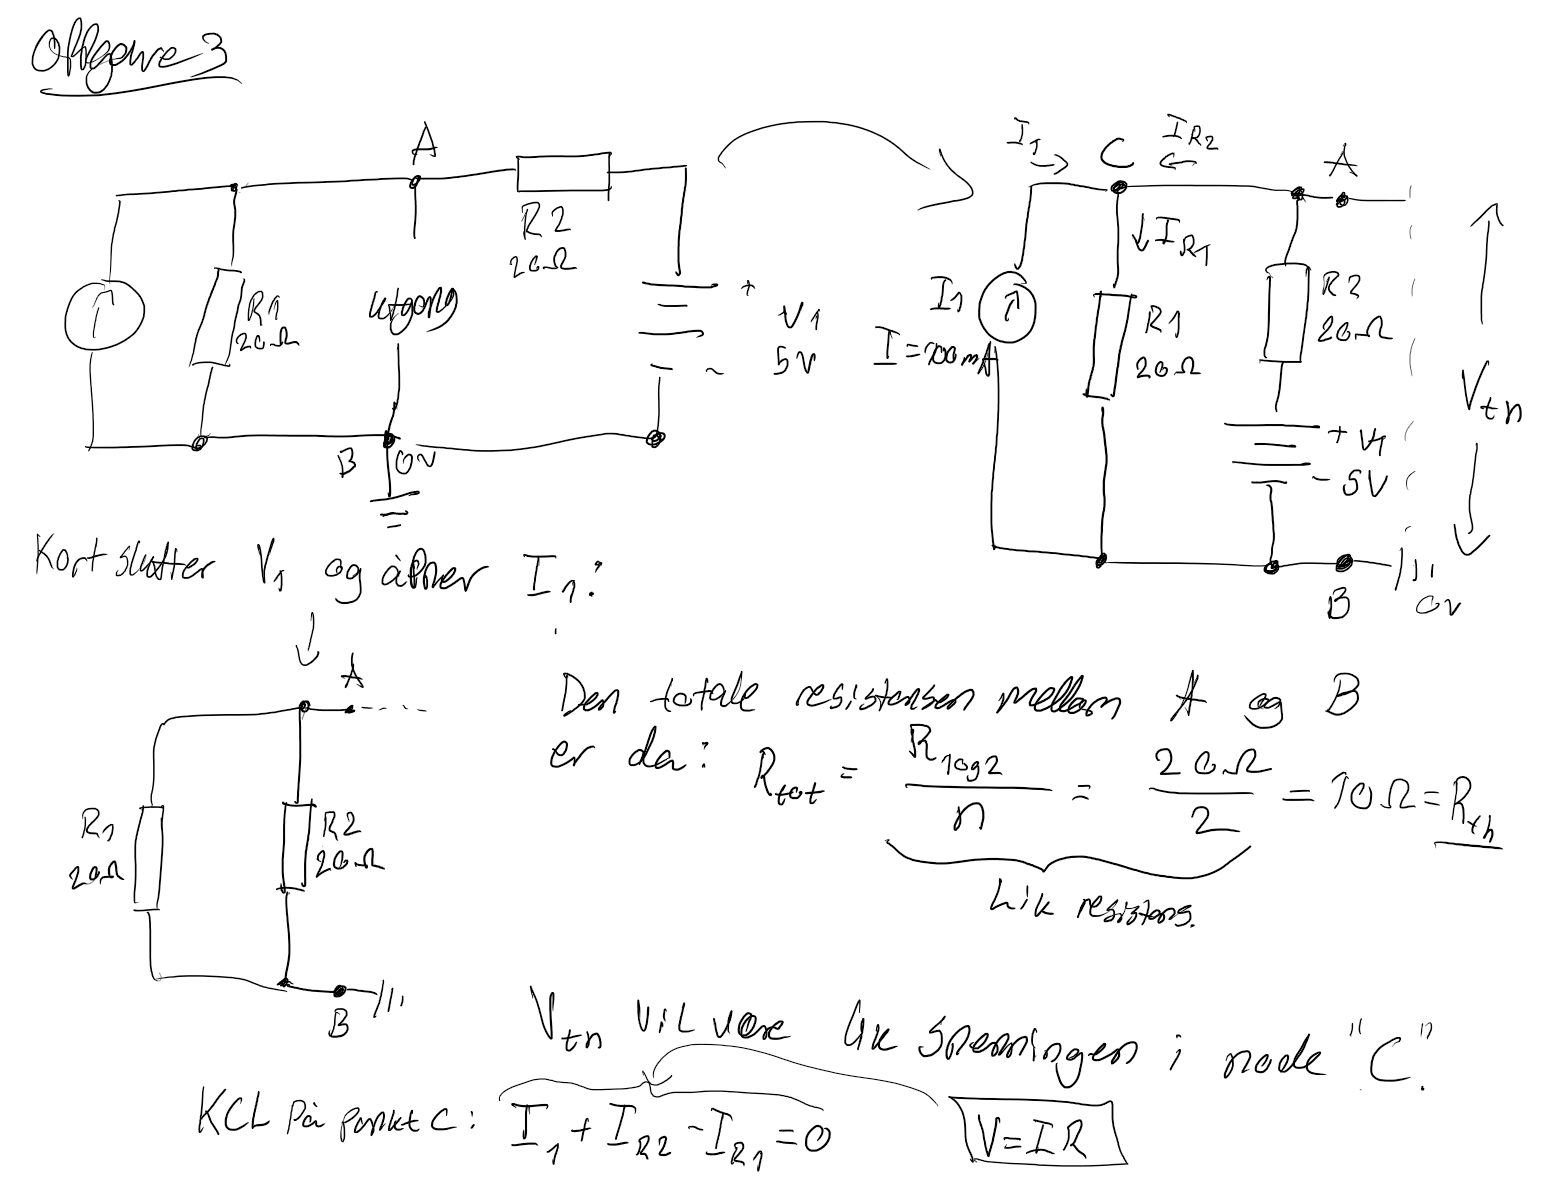 Oppgave 3
A
R2
20Ω
R1
20Ω
utgang
+
V1
5V
-
B 0V
I1
C
IR2
A
IR1
I1
R1
20Ω
R2
20Ω
+ V1
- 5V
Vth
B 0V
Kortslutter V1 og åpner I1:
A
R1
20Ω
R2
20Ω
B
Den totale resistansen mellom A og B
er da: Rtot = R1og2 / n = 20Ω / 2 = 10Ω = Rth
Lik resistans.
Vth vil være lik spenningen i node "C".
KCL på punkt C: I1 + IR2 - IR1 = 0
V = IR